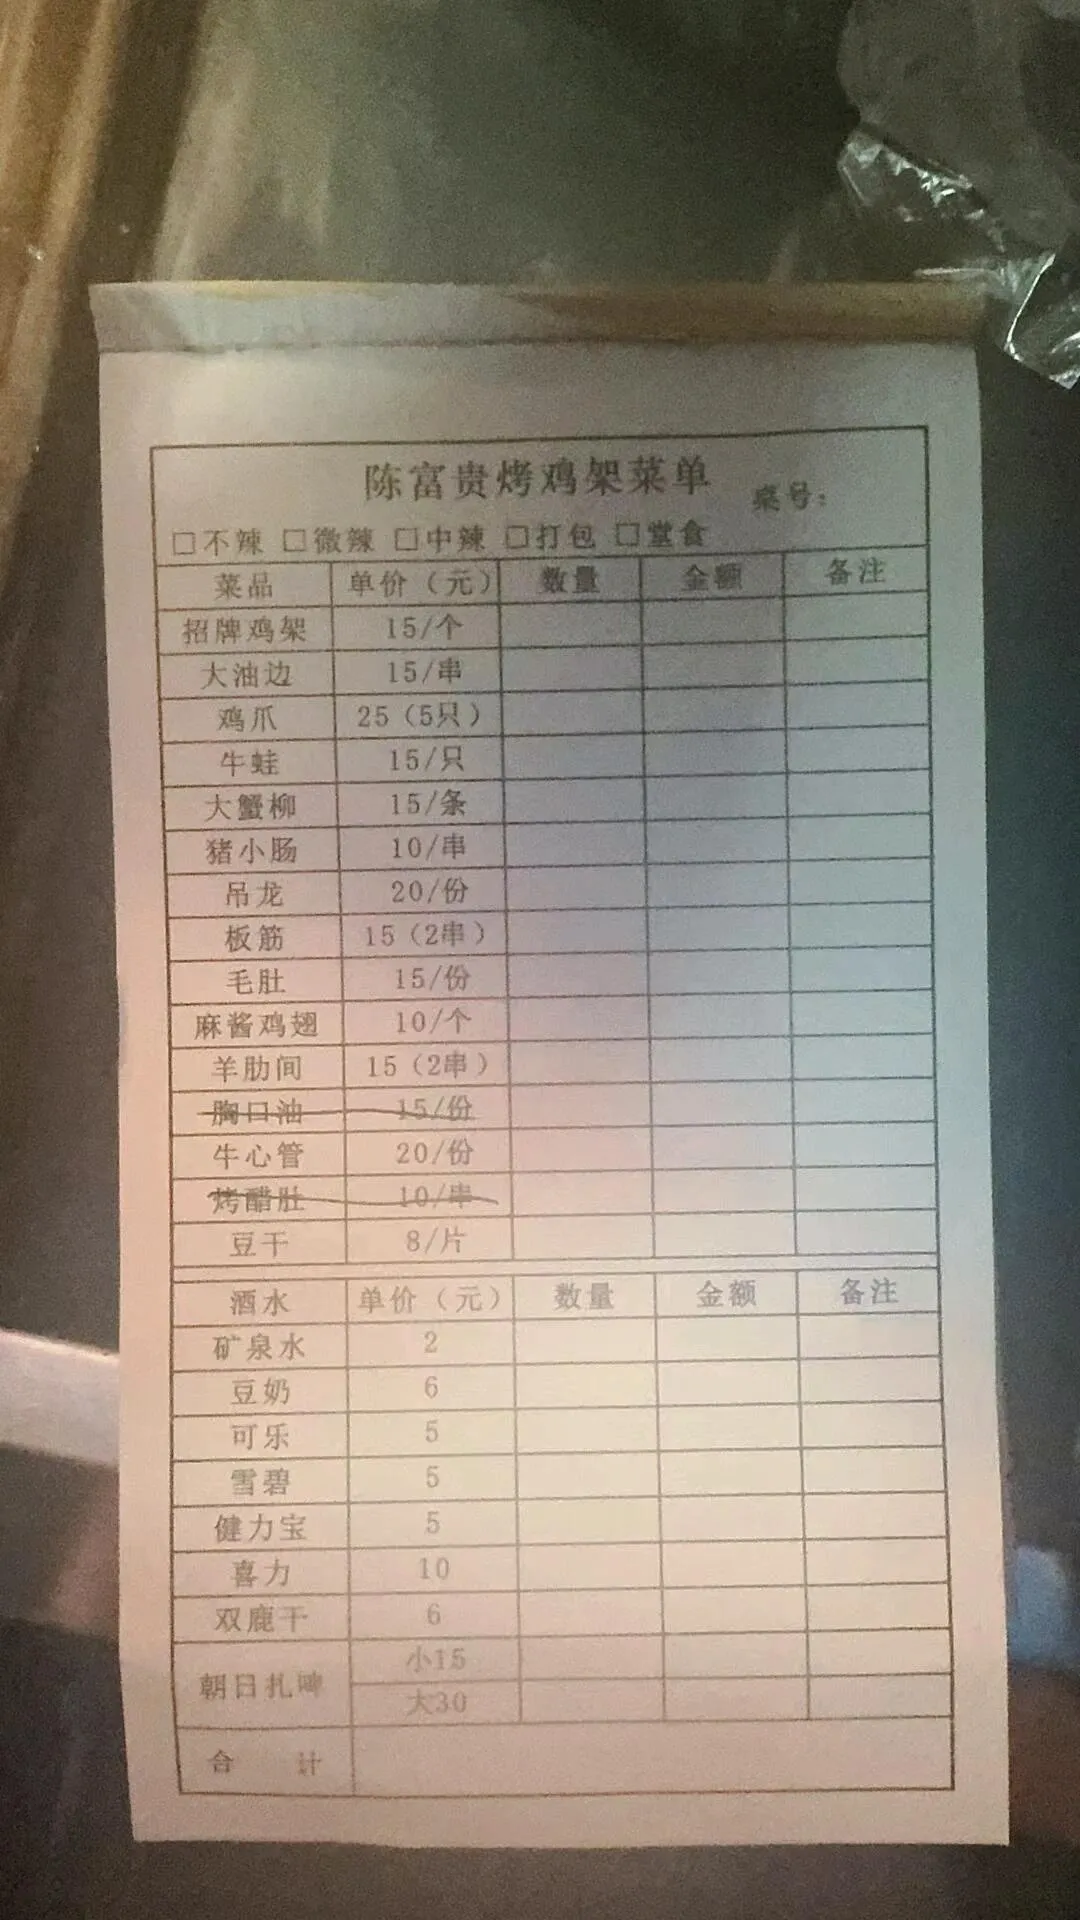 陈富贵烤鸡架菜单 桌号：
□不辣 □微辣 □中辣 □打包 □堂食
菜品 单价（元） 数量 金额 备注
招牌鸡架 15/个
大油边 15/串
鸡爪 25（5只）
牛蛙 15/只
大蟹柳 15/条
猪小肠 10/串
吊龙 20/份
板筋 15（2串）
毛肚 15/份
麻酱鸡翅 10/个
羊肋间 15（2串）
胸口油 15/份
牛心管 20/份
烤醋肚 10/串
豆干 8/片
酒水 单价（元） 数量 金额 备注
矿泉水 2
豆奶 6
可乐 5
雪碧 5
健力宝 5
喜力 10
双鹿干 6
朝日扎啤 小15
大30
合 计